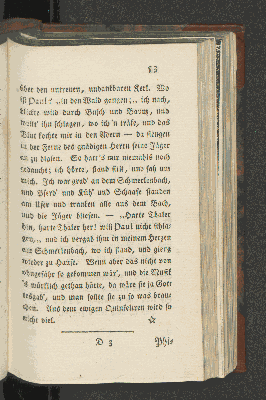 83
über den untreuen, undankbaren Kerl. Wo
ist Paul? „in den Wald gangen;„ ich nach,
blickte wild durch Busch und Baum, und
wollt' ihn schlagen, wo ich'n träfe, und das
Blut kochte mir in den Adern — da fiengen
in der Ferne des gnädigen Herrn seine Jäger
an zu blasen. So hatt's mir niemahls noch
gedaucht; ich hörte, stand still, und sah um
mich. Ich war grad' an dem Schmerlenbach,
und Pferd' und Küh' und Schaafe standen
am Ufer und tranken alle aus dem Bach,
und die Jäger bliesen. — „Harte Thaler
hin, harte Thaler her! will Paul nicht schla-
gen„, und ich vergab ihm in meinem Herzen
am Schmerlenbach, wo ich stand, und gieng
wieder zu Hause. Wenn aber das nicht von
ohngefähr so gekommen wär', und die Musik
's würklich gethan hätte, da wäre sie ja Gott
und man sollte sie zu so was brau-
chen. Aus dem ewigen Quinkeliren wird so
nicht viel.
D 3